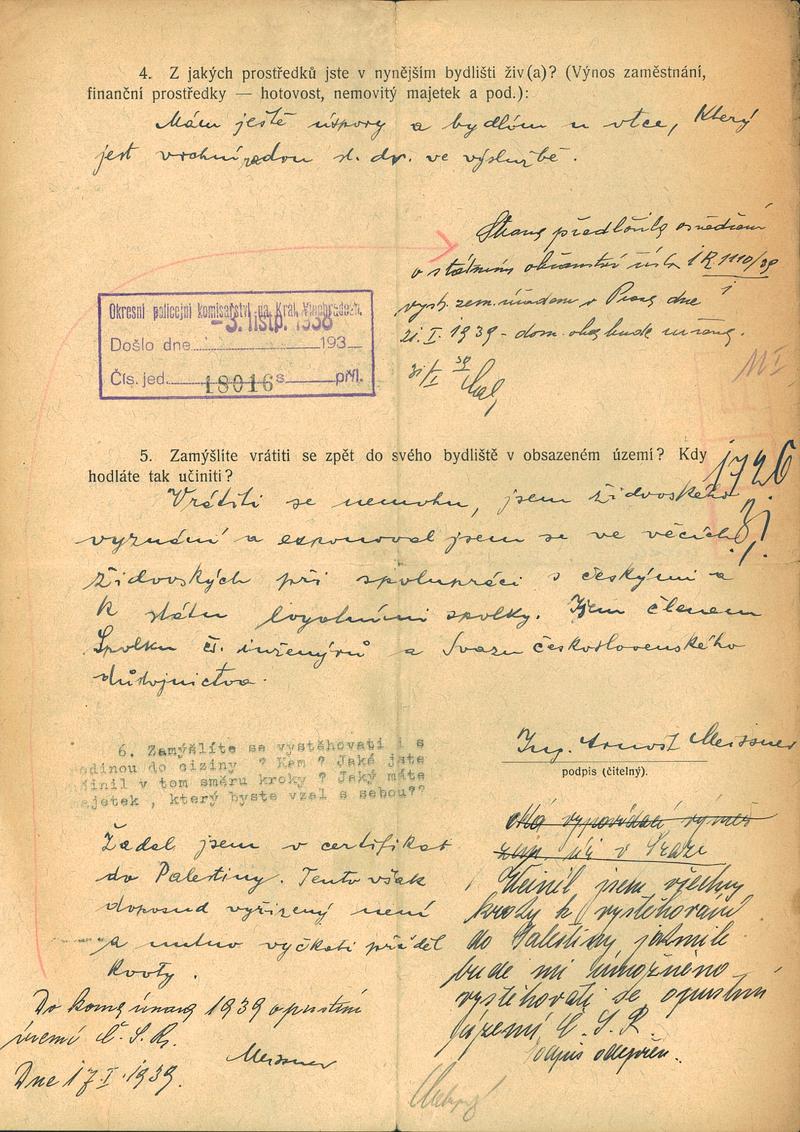 4. Z jakých prostředků jste v nynějším bydlišti živ(a)? (Výnos zaměstnání,
finanční prostředky — hotovost, nemovitý majetek a pod.):
Mám ještě úspory a bydlím u otce, který
jest vrchní st. dr. ve výslužbě.
Strana předložila osvědčení
o státním občanství čísla I R 1110/39
vyst. zem. úřadem v Praze dne
21. I. 1939 - dom. bude
31/I 39
Okresní policejní komisařství na Král. Vinohradech.
-3. listp. 1938
Došlo dne 193
Čís. jed. 18016 s příl.
5. Zamýšlíte vrátiti se zpět do svého bydliště v obsazeném území? Kdy
hodláte tak učiniti?
1726
Vrátiti se nemohu, jsem židovského
vyznání a exponoval jsem se ve věcech
židovských při spolupráci s českými a
k státu loyalními spolky. Jsem členem
Spolku čs. inženýrů a Svazu československého
důstojnictva.
Ing. Arnošt Meissner
podpis (čitelný).
6. Zamýšlíte se vystěhovati i s
odinou do ciziny ? Kam ? Jaké jste
činil v tom směru kroky ? Jaký máte
ajetek , který byste vzal s sebou??
Žádal jsem v certifikat
do Palestiny. Tento však
doposud vyřízený není
a nutno vyčkati příděl
kvoty.
Do konce února 1939 opustím
území Č. S. R.
Meissner
Dne 17. I. 1939.
má vypovídací výměr
zem. úř. v Praze
Učinil jsem všechny
kroky k vystěhování
do Palestiny, jakmile
bude mi umožněno
vystěhovati se opustím
území Č. S. R.
Podpis odepřen.